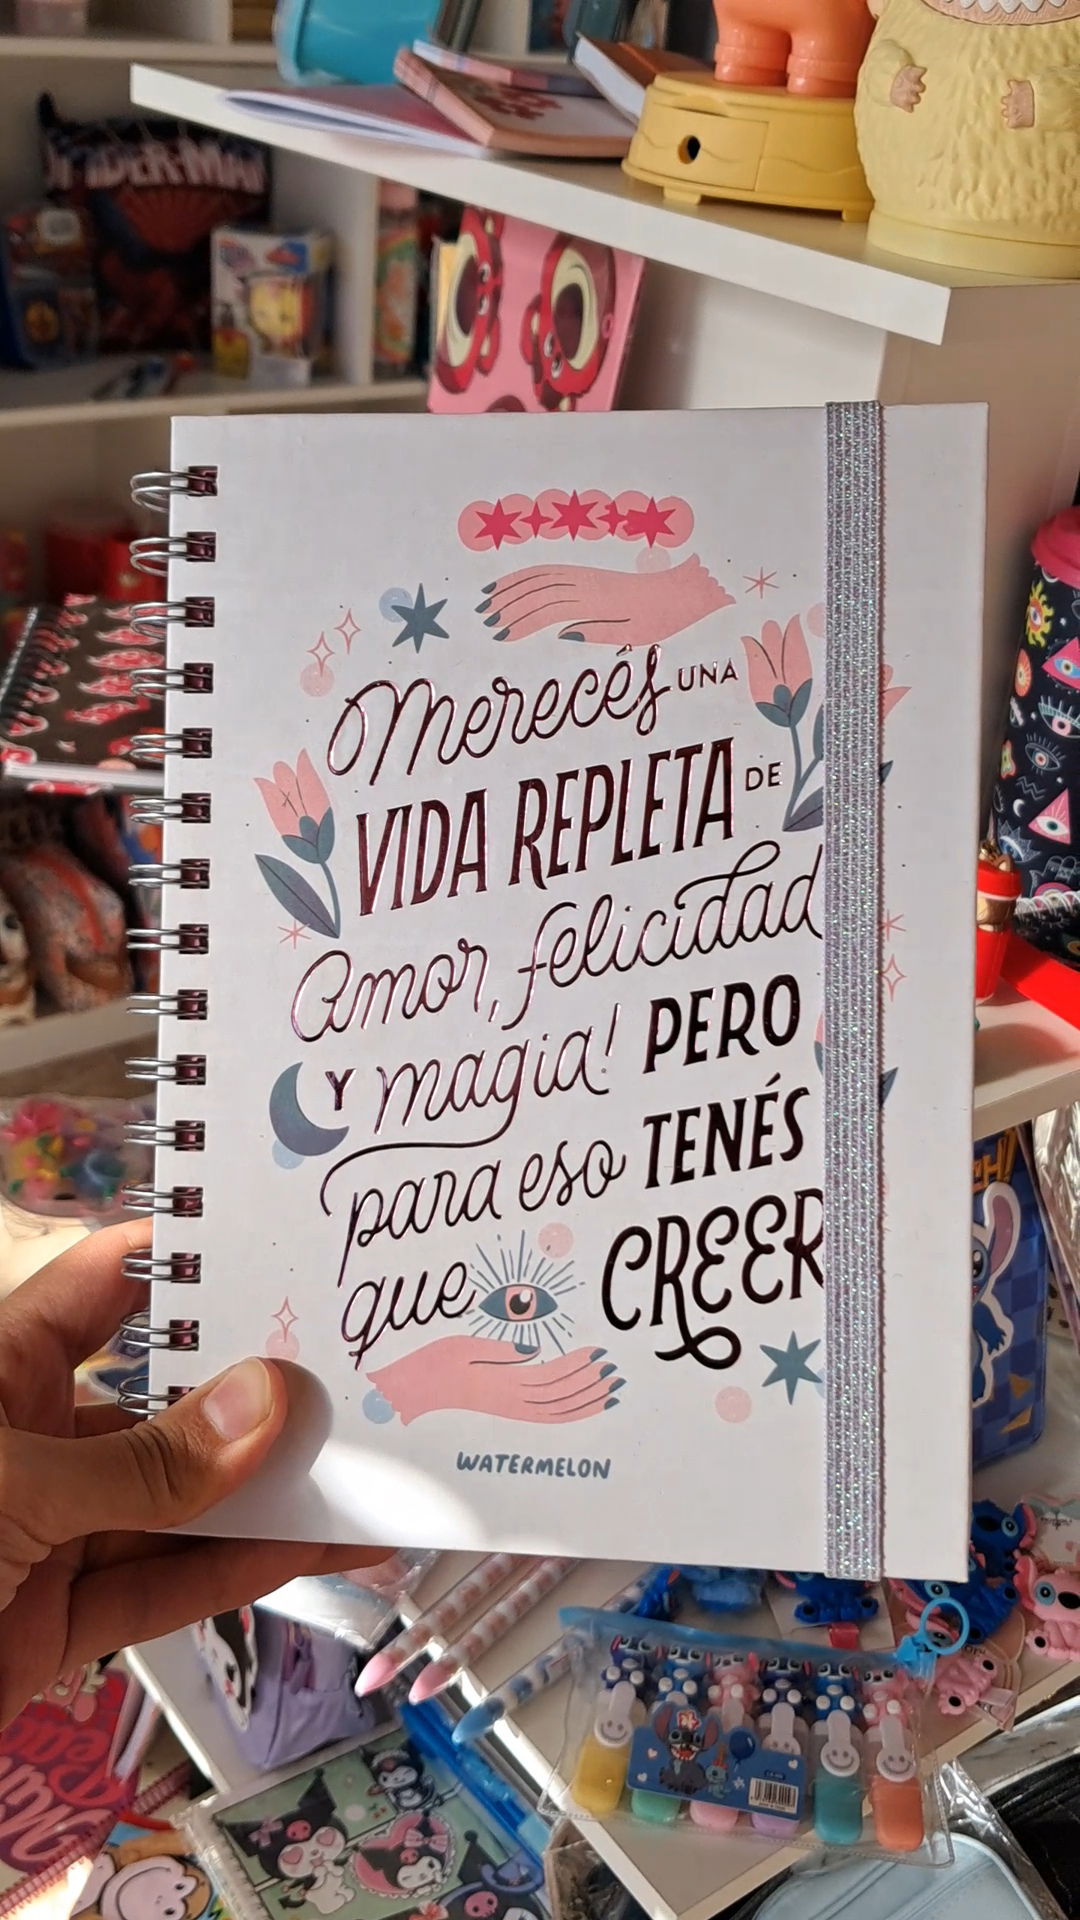 SPIDER-MAN
Merecés UNA
VIDA REPLETA DE
Amor, felicidad
Y magia! PERO
para eso TENÉS
que CREER
WATERMELON